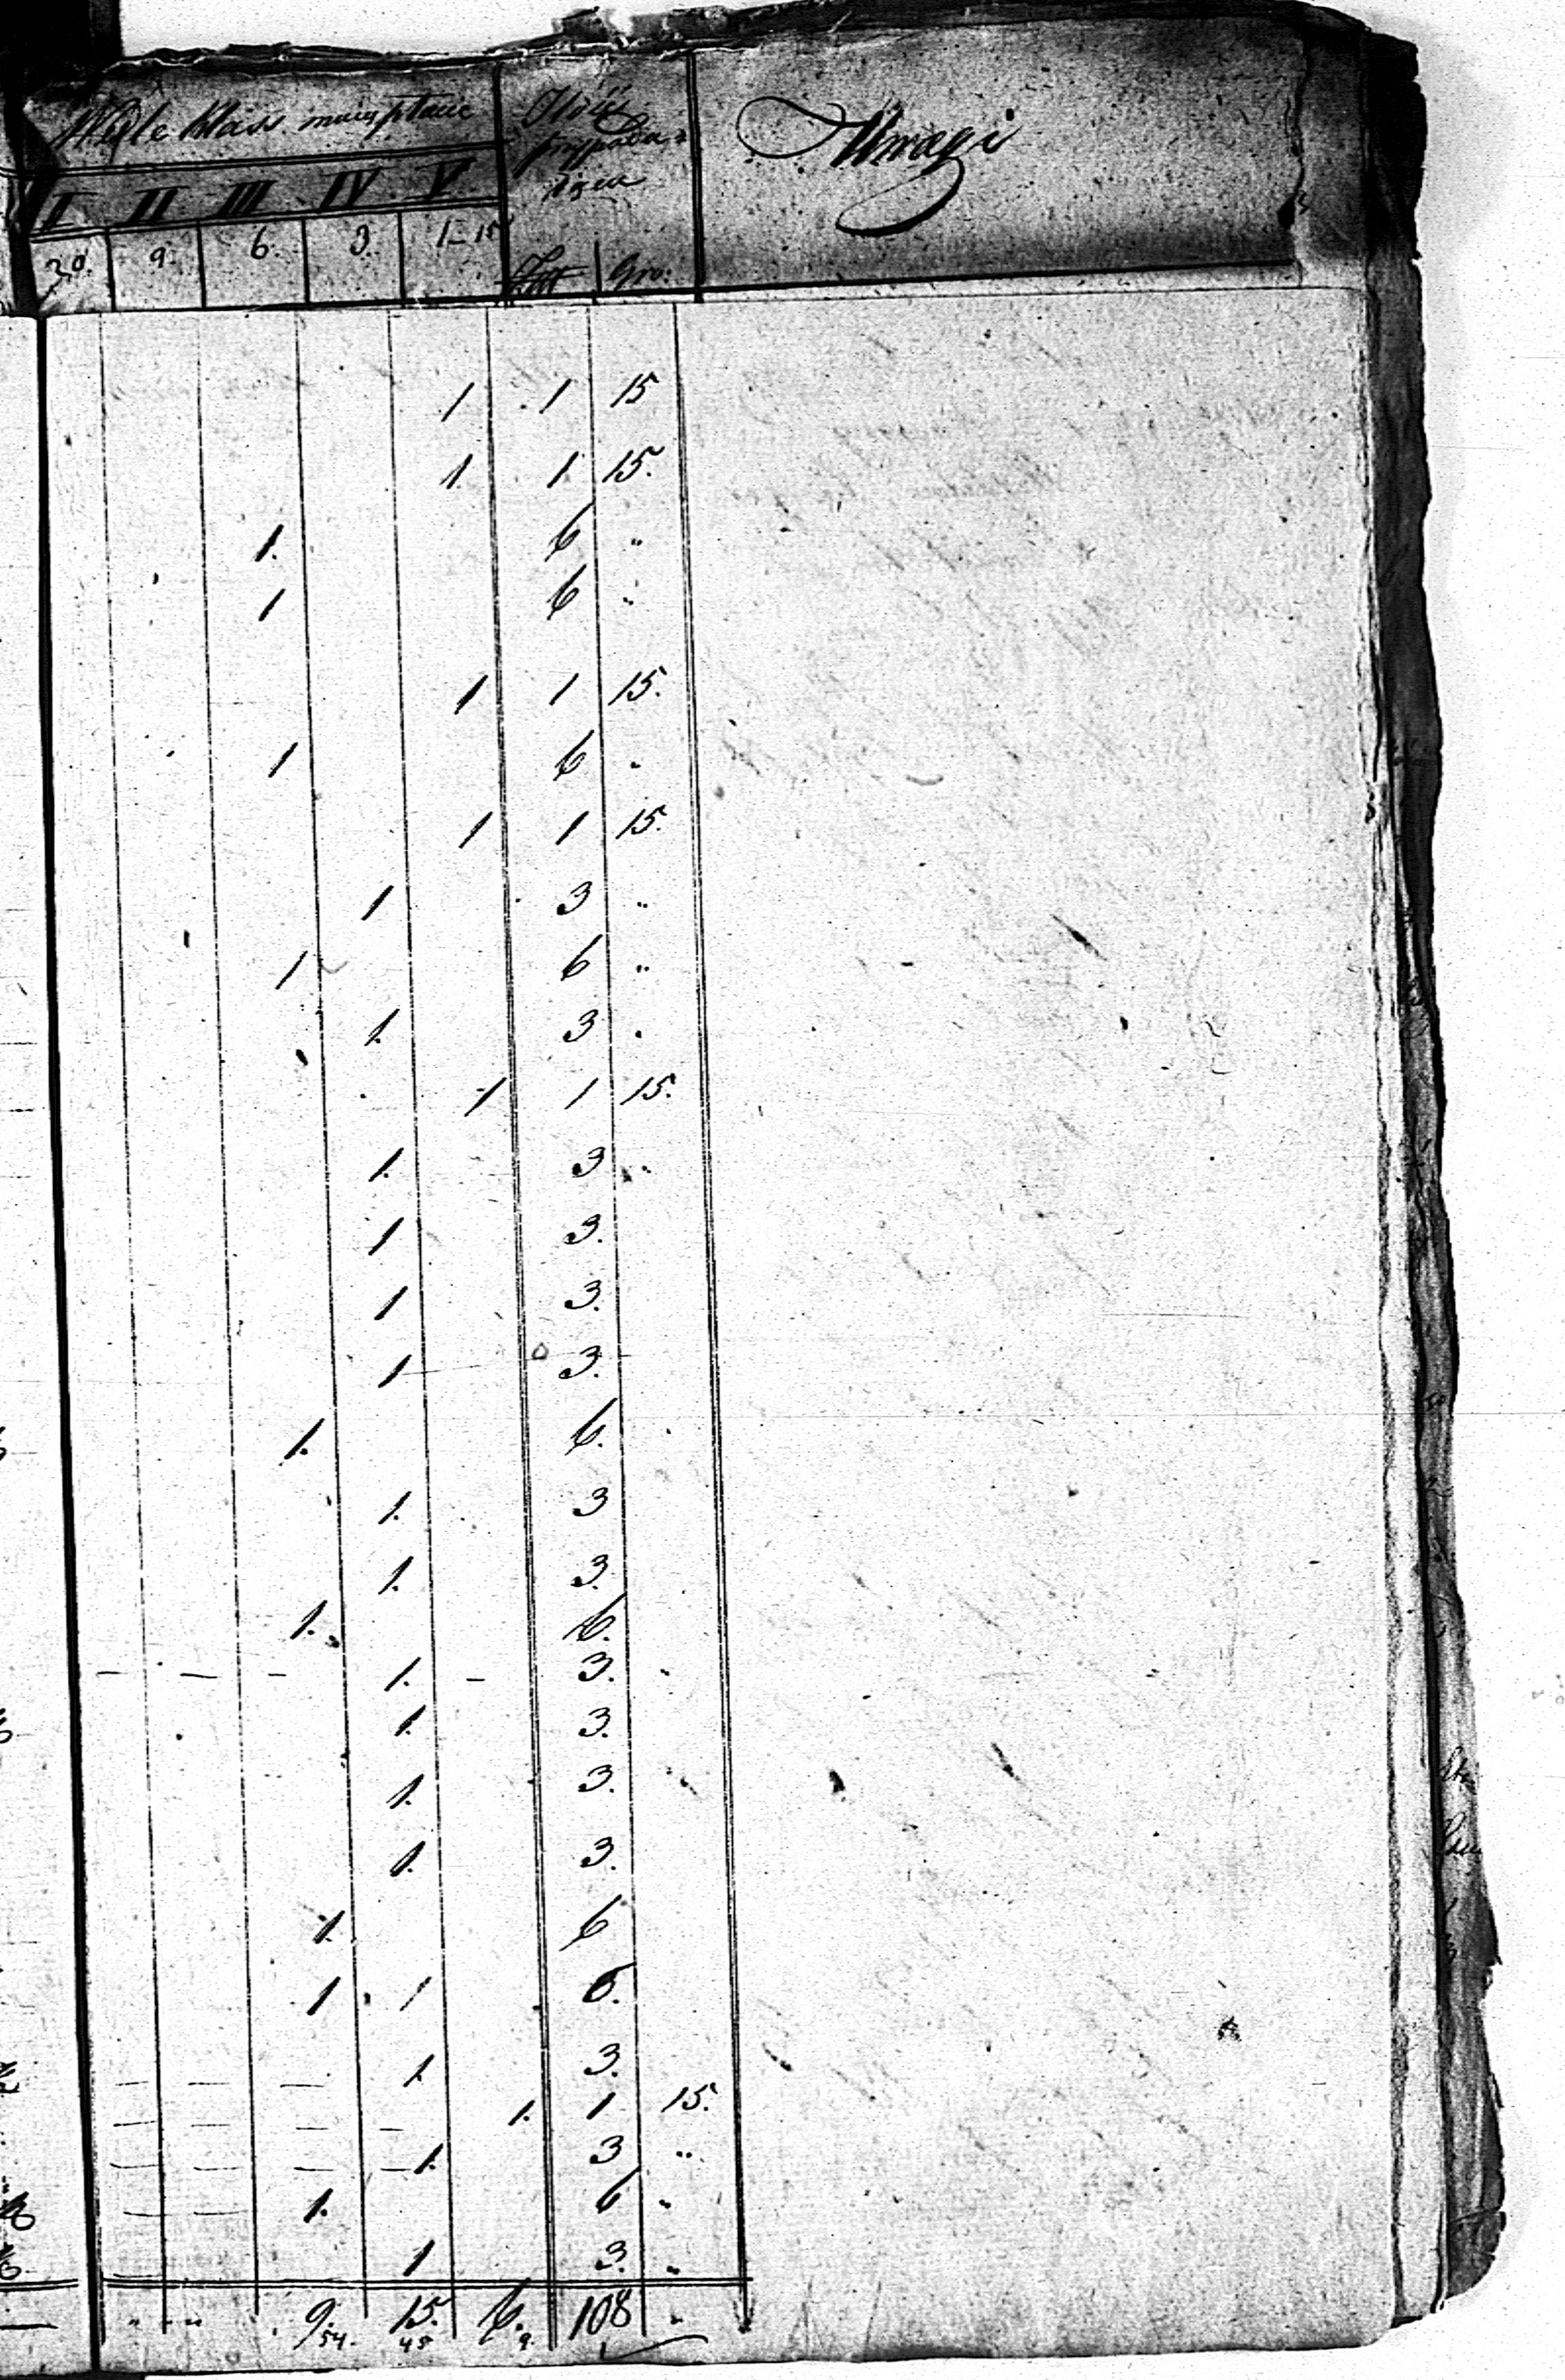 Wiele klass. 
Uwagi
I II III IV V
30. 9. 6. 3. 1-15
Złt Gro:
1 1 15
1 1 15.
1. 6 "
1 6 "
1 1 15.
1 6 .
1 1 15.
1 3 "
1 6 "
1. 3 .
1 1 15.
1. 3 "
1 3.
1 3.
1 3.
1. 6.
1. 3
1. 3.
1. 6.
– – – 1. – 3. .
1. 3.
1. 3.
1. 3.
1. 6
1 1 6.
– – – 1. 3.
– – – – 1. 1 15.
– – – – 1. 3 "
– – 1. 6 .
1 3. "
" " 9. 15. 6. 108 "
54. 45 9.